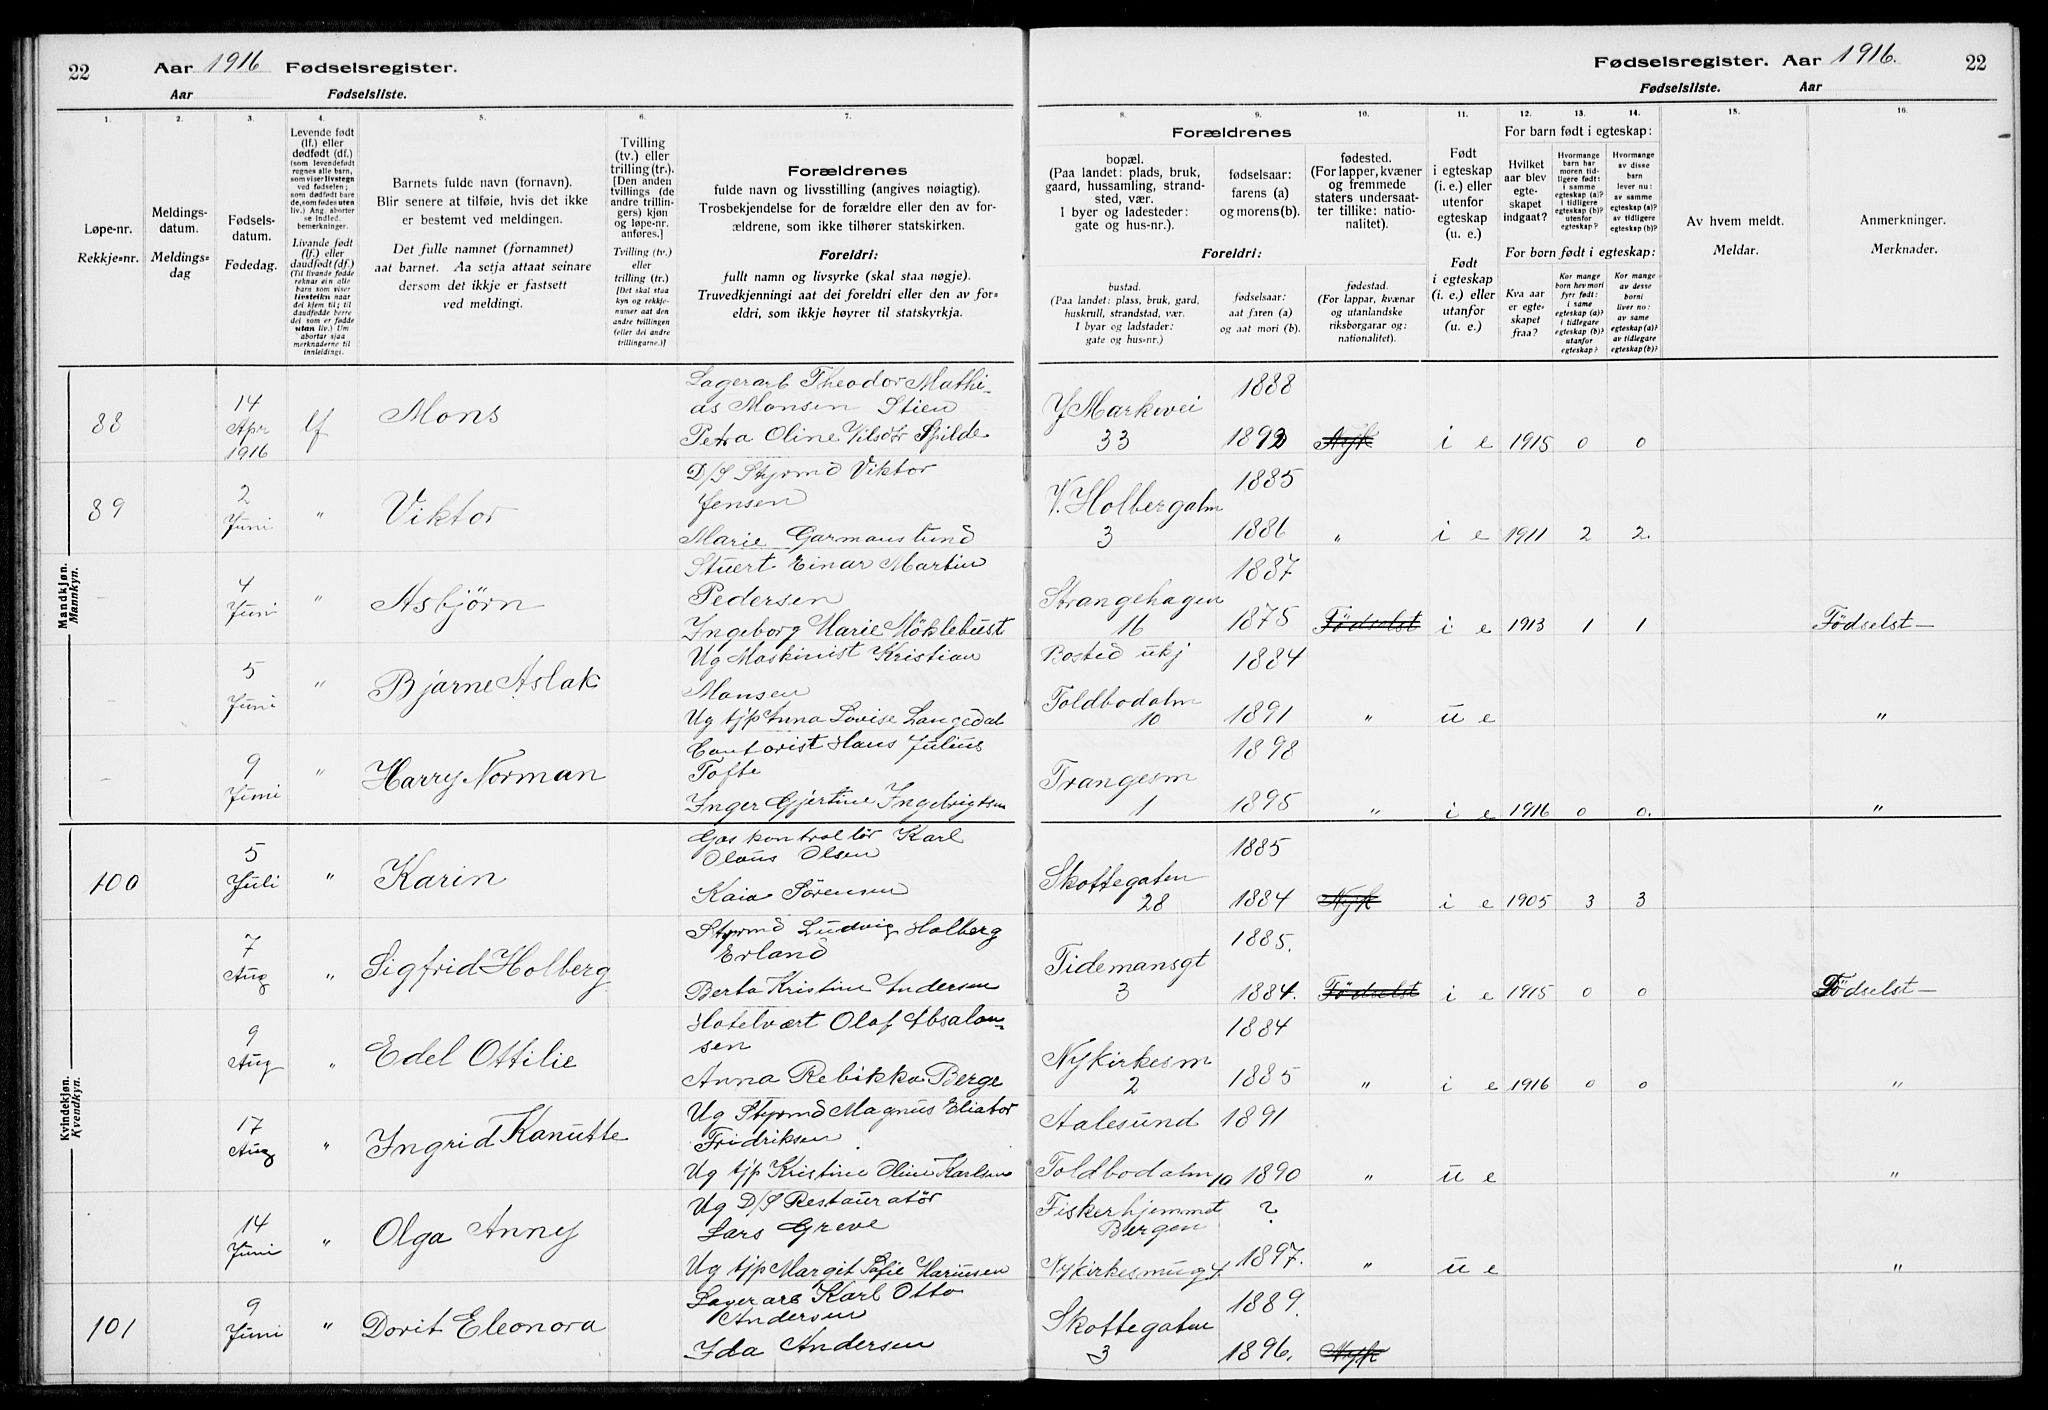 22 Aar 1916 Fødselsregister.
Aar Fødselsliste.
1. 2. 3. 4. 5. 6. 7.
Løpe-nr.
Rekkje=nr.
Meldings-
datum.
Meldings=
dag
Fødsels-
datum.
Fødedag.
Levende født
(lf.) eller
dødfødt (df.)
(som levendefødt
regnes alle barn,
som viser livstegn
ved fødselen;
som dødfødt barn
de, som fødes uten
liv.) Ang. aborter
se indled.
bemerkninger.
Livande født
(lf.) eller
daudfødt (df.)
(Til livande fødde
reknar ein alle
barn som viser
livsteikn naar
dei kjem til; til
daudfødde berre
dei som er fødde
utan liv.) Um
abortar sjaa
merknaderne til
innleidingi.
Barnets fulde navn (fornavn).
Blir senere at tilføie, hvis det ikke
er bestemt ved meldingen.
Det fulle namnet (fornamnet)
aat barnet. Aa setja attaat seinare
dersom det ikkje er fastsett
ved meldingi.
Tvilling
(tv.) eller
trilling (tr.).
[Den anden
tvillings (de
andre trillin-
gers) kjøn
og løpe-nr.
anføres.]
Tvilling (tv.)
eller
trilling (tr.)
[Det skal staa
kyn og rekkje-
numer aat den
andre tvillingen
(eller dei andre
trillingarne.)]
Forældrenes
fulde navn og livsstilling (angives nøiagtig).
Trosbekjendelse for de forældre eller den av for-
ældrene, som ikke tilhører statskirken.
Foreldri:
fullt namn og livsyrke (skal staa nøgje).
Truvedkjenningi aat dei foreldri eller den av for=
eldri, som ikkje høyrer til statskyrkja.
Mandkjøn.
Mannkyn.
88 14 Apr 1916 lf Mons
Lagerarb Theodor Mathi-
as Monsen Stien
Petra Oline Nilsdtr Spilde
89 2 Juni " Viktor
D/S Styrmd Viktor
Jensen
Marie Garmanslund
- 4 Juni " Asbjörn
Stuert Einar Martin
Pedersen
Ingeborg Marie Möklebust
- 5 Juni " Bjarne Aslak
Ug Maskinist Kristian
Monsen
Ug tjp Anna Lovise Langedal
- 9 Juni " Harry Norman
Contorist Hans Julius
Tofte
Inger Gjertine Ingebrigtsen
Kvindekjøn.
Kvendkyn.
100 5 Juli " Karin
Gaskontrollör Karl
Olaus Olsen
Kaia Sörensen
7 Aug " Sigfrid Holberg
Styrmd Ludvig Holberg
Erland
Berta Kristine Andersen
9 Aug " Edel Ottilie
Hotelvært Olaf Absalon-
sen
Anna Rebikka Berge
17 Aug " Ingrid Kanutte
Ug Styrmd Magnus Eliator
Fridriksen
Ug tjp Kristine Oline Karlsen
14 Juni " Olga Anny
Ug D/S Restauratör
Lars Greve
Ug tjp Margit Sofie Mariusen
101 9 Juni " Dorit Eleonora
Lagerarb Karl Otto
Andersen
Ida Andersen
Fødselsregister. Aar 1916. 22
Fødselsliste. Aar
8. 9. 10. 11. 12. 13. 14. 15. 16.
Forældrenes
bopæl.
(Paa landet: plads, bruk,
gaard, hussamling, strand-
sted, vær.
I byer og ladesteder:
gate og hus-nr.).
fødselsaar:
farens (a)
og morens (b).
fødested.
(For lapper, kvæner
og fremmede
staters undersaat-
ter tillike: natio-
nalitet).
Foreldri:
bustad.
(Paa landet: plass, bruk, gard,
huskrull, strandstad, vær.
I byar og ladstader:
gate og hus=nr.)
fødselsaar:
aat faren (a)
og aat mori (b).
fødestad.
(For lappar, kvænar
og utanlandske
riksborgarar og:
nationalitet).
Født
i egteskap
(i. e.) eller
utenfor
egteskap
(u. e.)
Født
i egteskap
(i. e.) eller
utanfor
(u. e.)
For barn født i egteskap:
Hvilket
aar blev
egte-
skapet
indgaat?
Hvormange
barn har
moren tid-
ligere født:
i samme
egteskap (a)?
i tidligere
egteskap (b)?
utenfor
egteskap?
Hvormange
av disse
barn
lever nu:
av samme
egteskap (a)?
av tidligere
egteskap (b)?
For born født i egteskap:
Kva aar
er egte-
skapet
fraa?
Kor mange
born hev mori
fyrr født:
i same
egteskap (a)?
i tidlegare
egteskap (b)?
utanfor
egteskap?
Kor mange
av desse
borni
liver no:
av same
egteskap (a)?
av tidlegare
egteskap (b)?
Av hvem meldt.
Meldar.
Anmerkninger.
Merknader.
Y Markevei 1888
33 1892 Nyk i e 1915 0 0
V. Holbergalm 1885
3 1886 " i e 1911 2 2.
Strangehagen 1887
16 1875 Födselst i e 1913 1 1 Födselst
Bosted ukj 1884
Toldbodalm 10 1891 " u e "
Trangesm 1898
1 1895 " i e 1916 0 0. "
Skottegaten 1885
28 1884 Nyk i e 1905 3 3
Tidemansgt 1885.
3 1884. Födselst i e 1915 0 0 Födselst
Nykirkesm 1884
2 1885 " i e 1916 0 0 "
Aalesund 1891
Toldbodalm 10 1890 " u e "
Fiskerhjemmet Bergen ?
Nykirkesmug 4. 1897. " u e "
Skottegaten 1889.
3 1896. Nyk